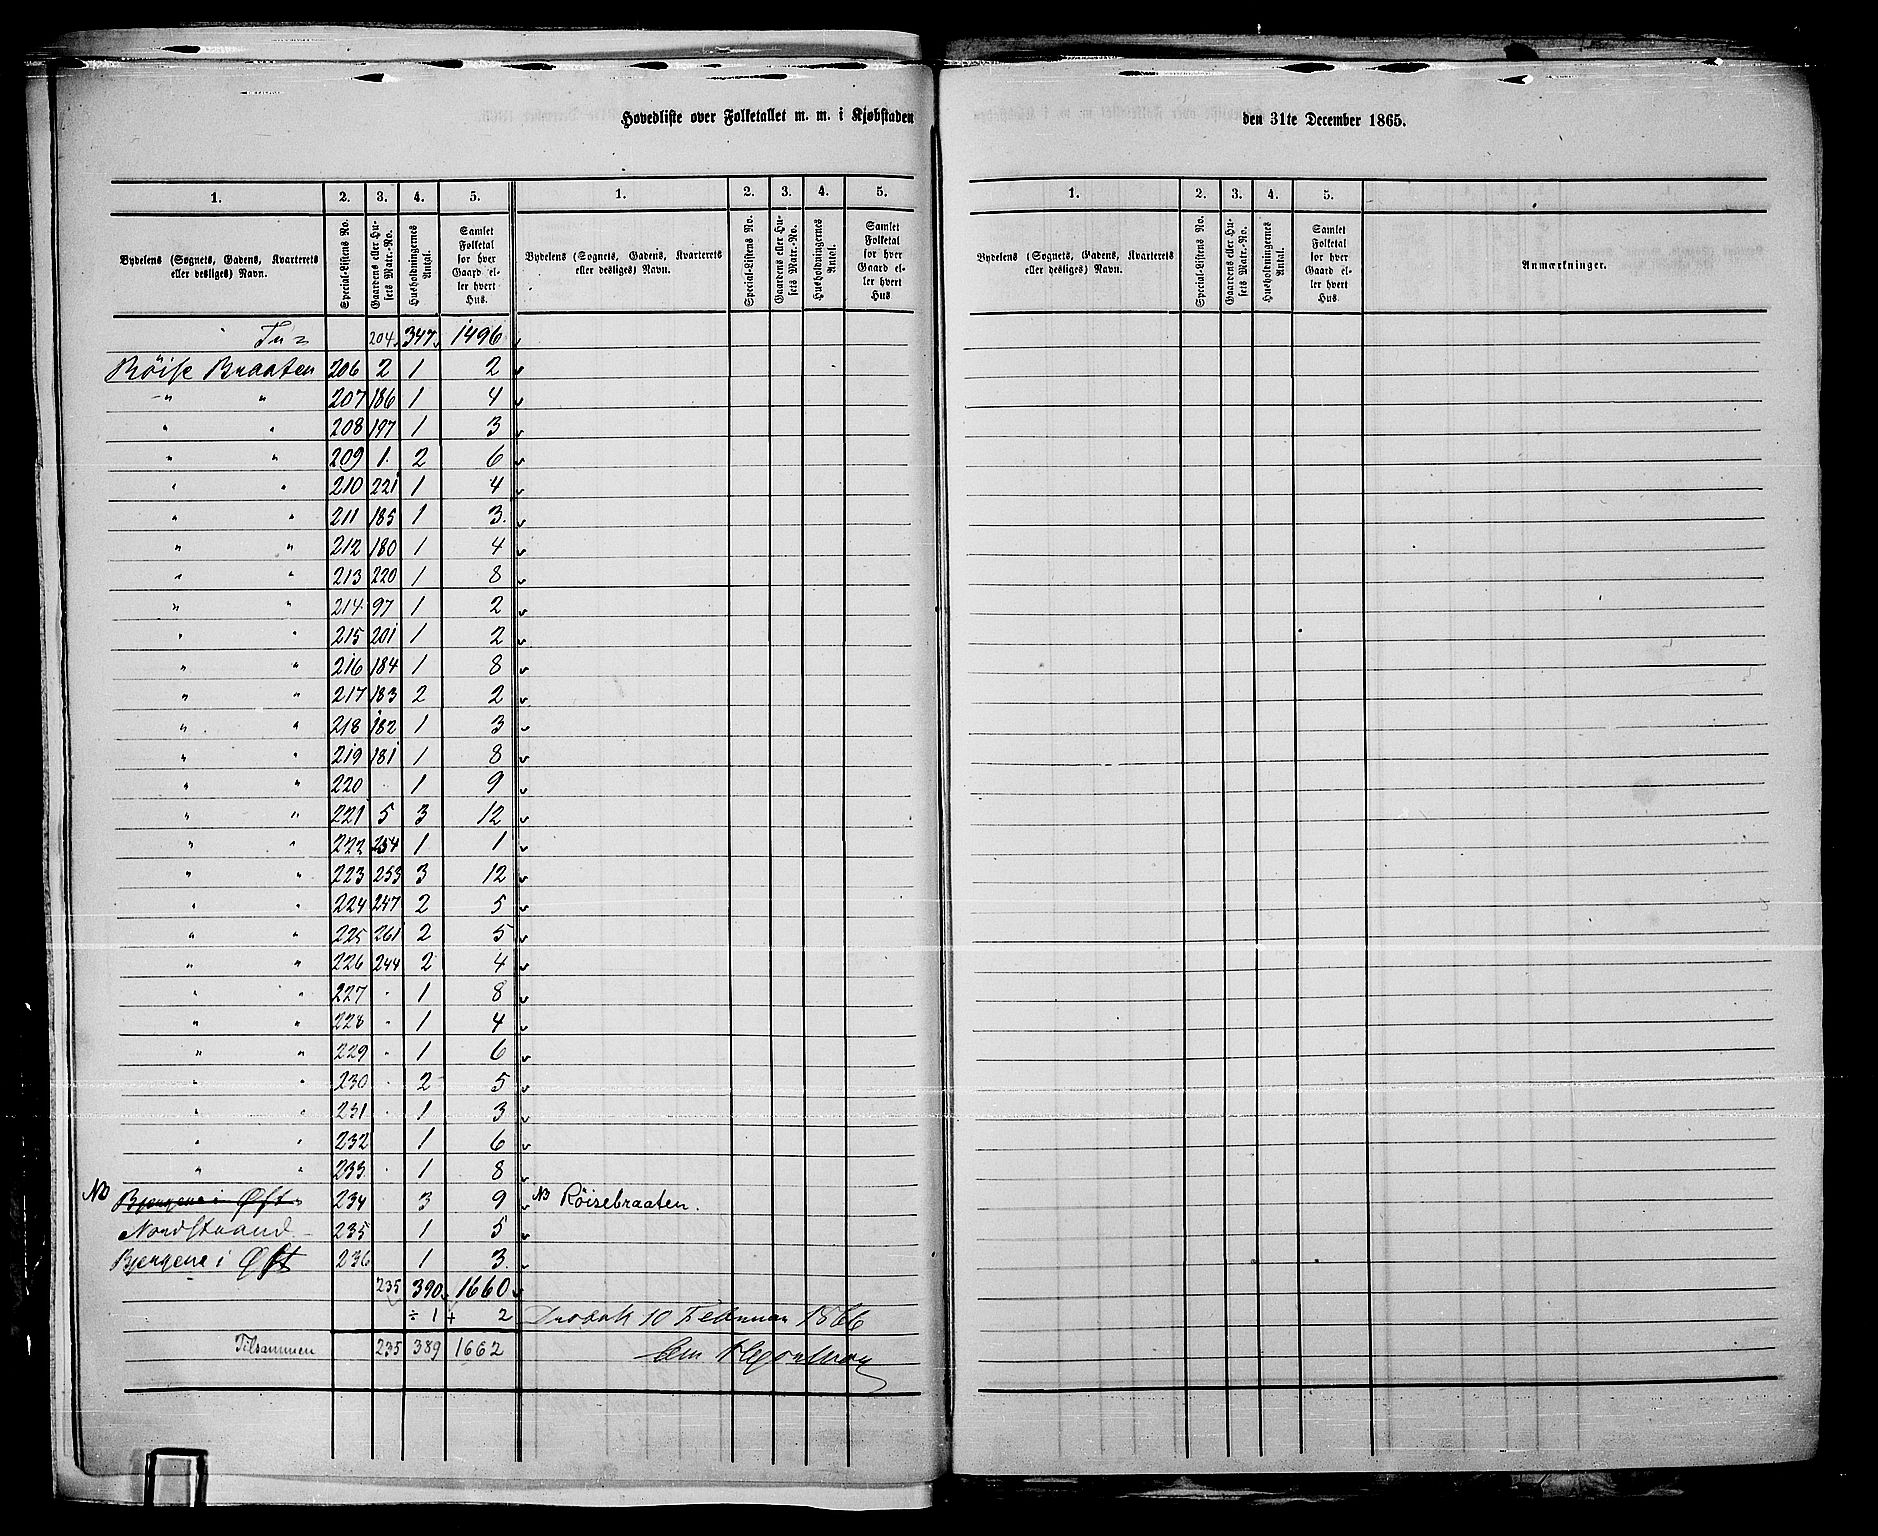 Hovedliste over Folketallet m. m. i Kjøbstaden den 31te December 1865.
1. 2. 3. 4. 5. 1. 2. 3. 4. 5.
Bydelens (Sognets, Gadens, Kvarterets eller desliges) Navn. Special-Listens No. Gaardens eller Husets Matr.-No. Husholdningernes Antal. Samlet Folketal for hver Gaard eller hvert Hus. Bydelens (Sognets, Gadens, Kvarterets eller desliges) Navn. Special-Listens No. Gaardens eller Husets Matr.-No. Husholdningernes Antal. Samlet Folketal for hver Gaard eller hvert Hus
204 347 1496
Röise Braaten 206 2 1 2
" " 207 186 1 4
" " 208 197 1 3
" " 209 1 2 6
" " 210 221 1 4
" " 211 185 1 3
" " 212 180 1 4
" " 213 220 1 8
" " 214 97 1 2
" " 215 201 1 2
" " 216 184 1 8
" " 217 183 2 2
" " 218 182 1 3
" " 219 181 1 8
" " 220 1 9
" " 221 5 3 12
" " 222 254 1 1
" " 223 253 3 12
" " 224 247 2 5
" " 225 261 2 5
" " 226 244 2 4
" " 227 1 8
" " 228 1 4
" " 229 1 6
" " 230 2 5
" " 231 1 3
" " 232 1 6
" " 233 1 8
NB 234 3 9 NB Röisebraaten.
Nordstrand 235 1 5
236 1 3
235 390 1660
÷ 1 + 2 Drøbak 10 Februar 1866
Tilsammen 235 389 1662
1. 2. 3. 4. 5.
Bydelens (Sognets, Gadens, Kvarterets eller desliges) Navn. Special-Listens No. Gaardens eller Husets Matr.-No. Husholdningernes Antal. Samlet Folketal for hver Gaard eller hvert Hus. Anmærkninger.